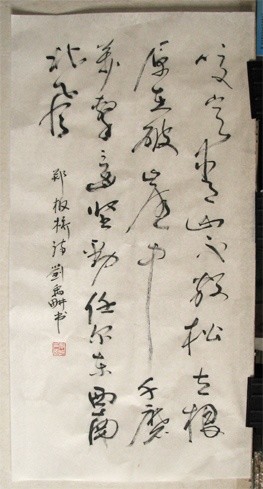 咬定青山不放松立根
原在破崖中千磨
萬擊还坚劲任尔东西南
北风
郑板桥诗 劉禹畊书